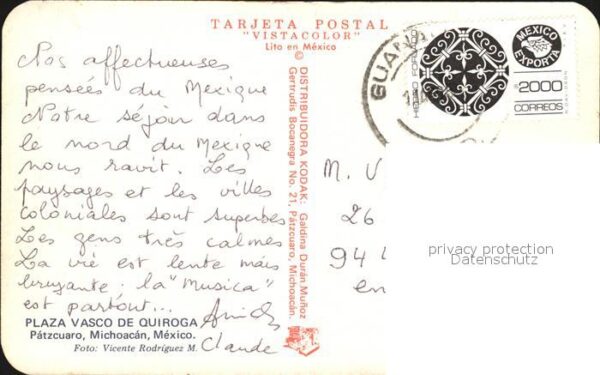 TARJETA POSTAL
"VISTACOLOR"
Lito en México
©
Nos affectueuses
pensées du Mexique
Notre séjour dans
le nord du Mexique
nous ravit. Les
paysages et les villes
coloniales sont superbes
Les gens très calmes
La vie est lente mais
bruyante : la "Musica"
est partout...
Amitiés
Claude
PLAZA VASCO DE QUIROGA
Pátzcuaro, Michoacán, México.
Foto: Vicente Rodríguez M.
DISTRIBUIDORA KODAK: Galdina Durán Muñoz
Gertrudis Bocanegra No. 21, Pátzcuaro, Michoacán.
GUANA
HIERRO FORJADO
MEXICO
EXPORTA
$2000
CORREOS
M. V
26
94
en
privacy protection
Datenschutz